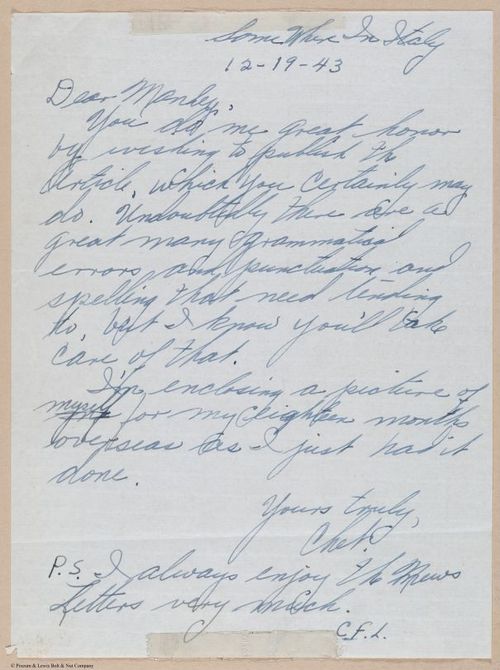 Some Where In Italy
12-19-43
Dear Manley,
You do me great honor
by wishing to publish the
article, which you certainly may
do. Undoubtedly there are a
great many grammatical
errors and punctuation and
spelling that need tending
to, but I know you'll take
care of that.
I'm enclosing a picture of
myself for my eighteen months
overseas as I just had it
done.
Yours truly,
Chet.
P.S. I always enjoy the News
Letters very much.
C.F.L.
© Pheoum & Lewis Bolt & Nut Company